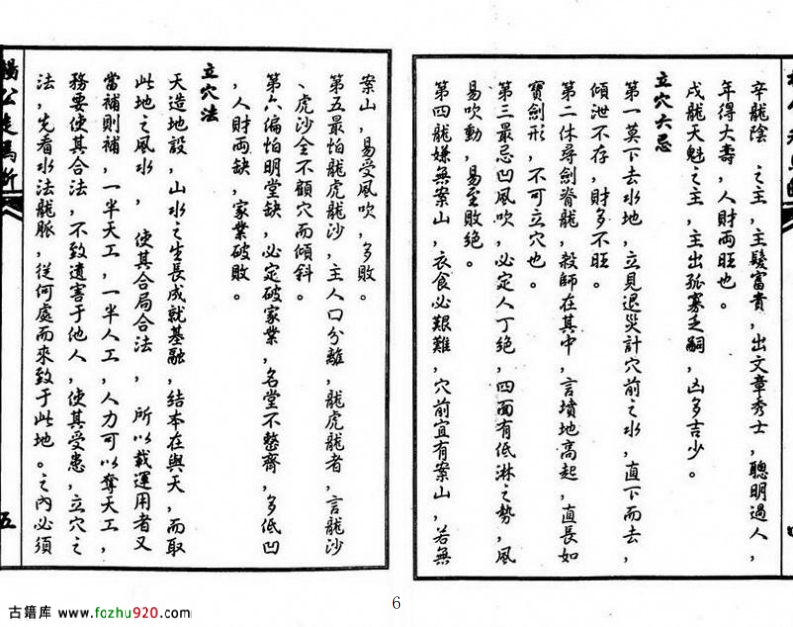 辛龍陰　之主，主發富貴，出文章秀士，聰明過人，
年得大壽，人財兩旺也。
戌龍天魁之主，主出孤寡乏嗣，凶多吉少。
立穴六忌
第一莫下去水地，立見退災計穴前之水，直下而去，
傾泄不存，財多不旺。
第二休尋劍脊龍，殺師在其中，言墳地高起，直長如
寶劍形，不可立穴也。
第三最忌凹風吹，必定人丁絕，四面有低淋之勢，風
易吹動，易至敗絕。
第四龍嫌無案山，衣食必艱難，穴前宜有案山，若無
四
楊公走馬斷
案山，易受風吹，多敗。
第五最怕龍虎龍沙，主人口分離，龍虎龍者，言龍沙
、虎沙全不顧穴而傾斜。
第六偏怕明堂缺，必定破家業，名堂不整齊，多低凹
，人財兩缺，家業破敗。
立穴法
天造地設，山水之生長成就基融，結本在與天，而取
此地之風水，　使其合局合法，　所以載運用者又
當補則補，一半天工，一半人工，人力可以奪天工，
務要使其合法，不致遺害于他人，使其受患，立穴之
法，先看水法龍脈，從何處而來致于此地。之內必須
五
6
古籍库 www.fozhu920.com